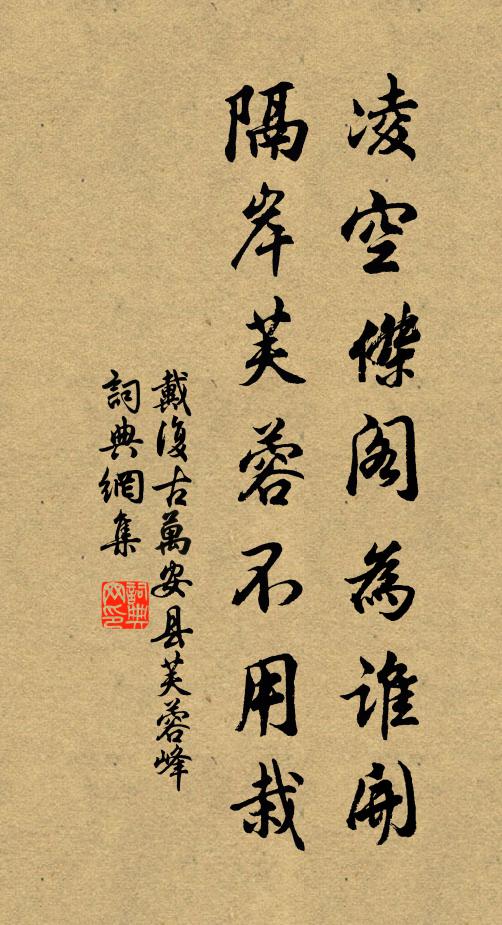 凌空傑阁為誰開
隔岸芙蓉不用栽
戴復古萬安县芙蓉峰
詞典網集
詞典
网印